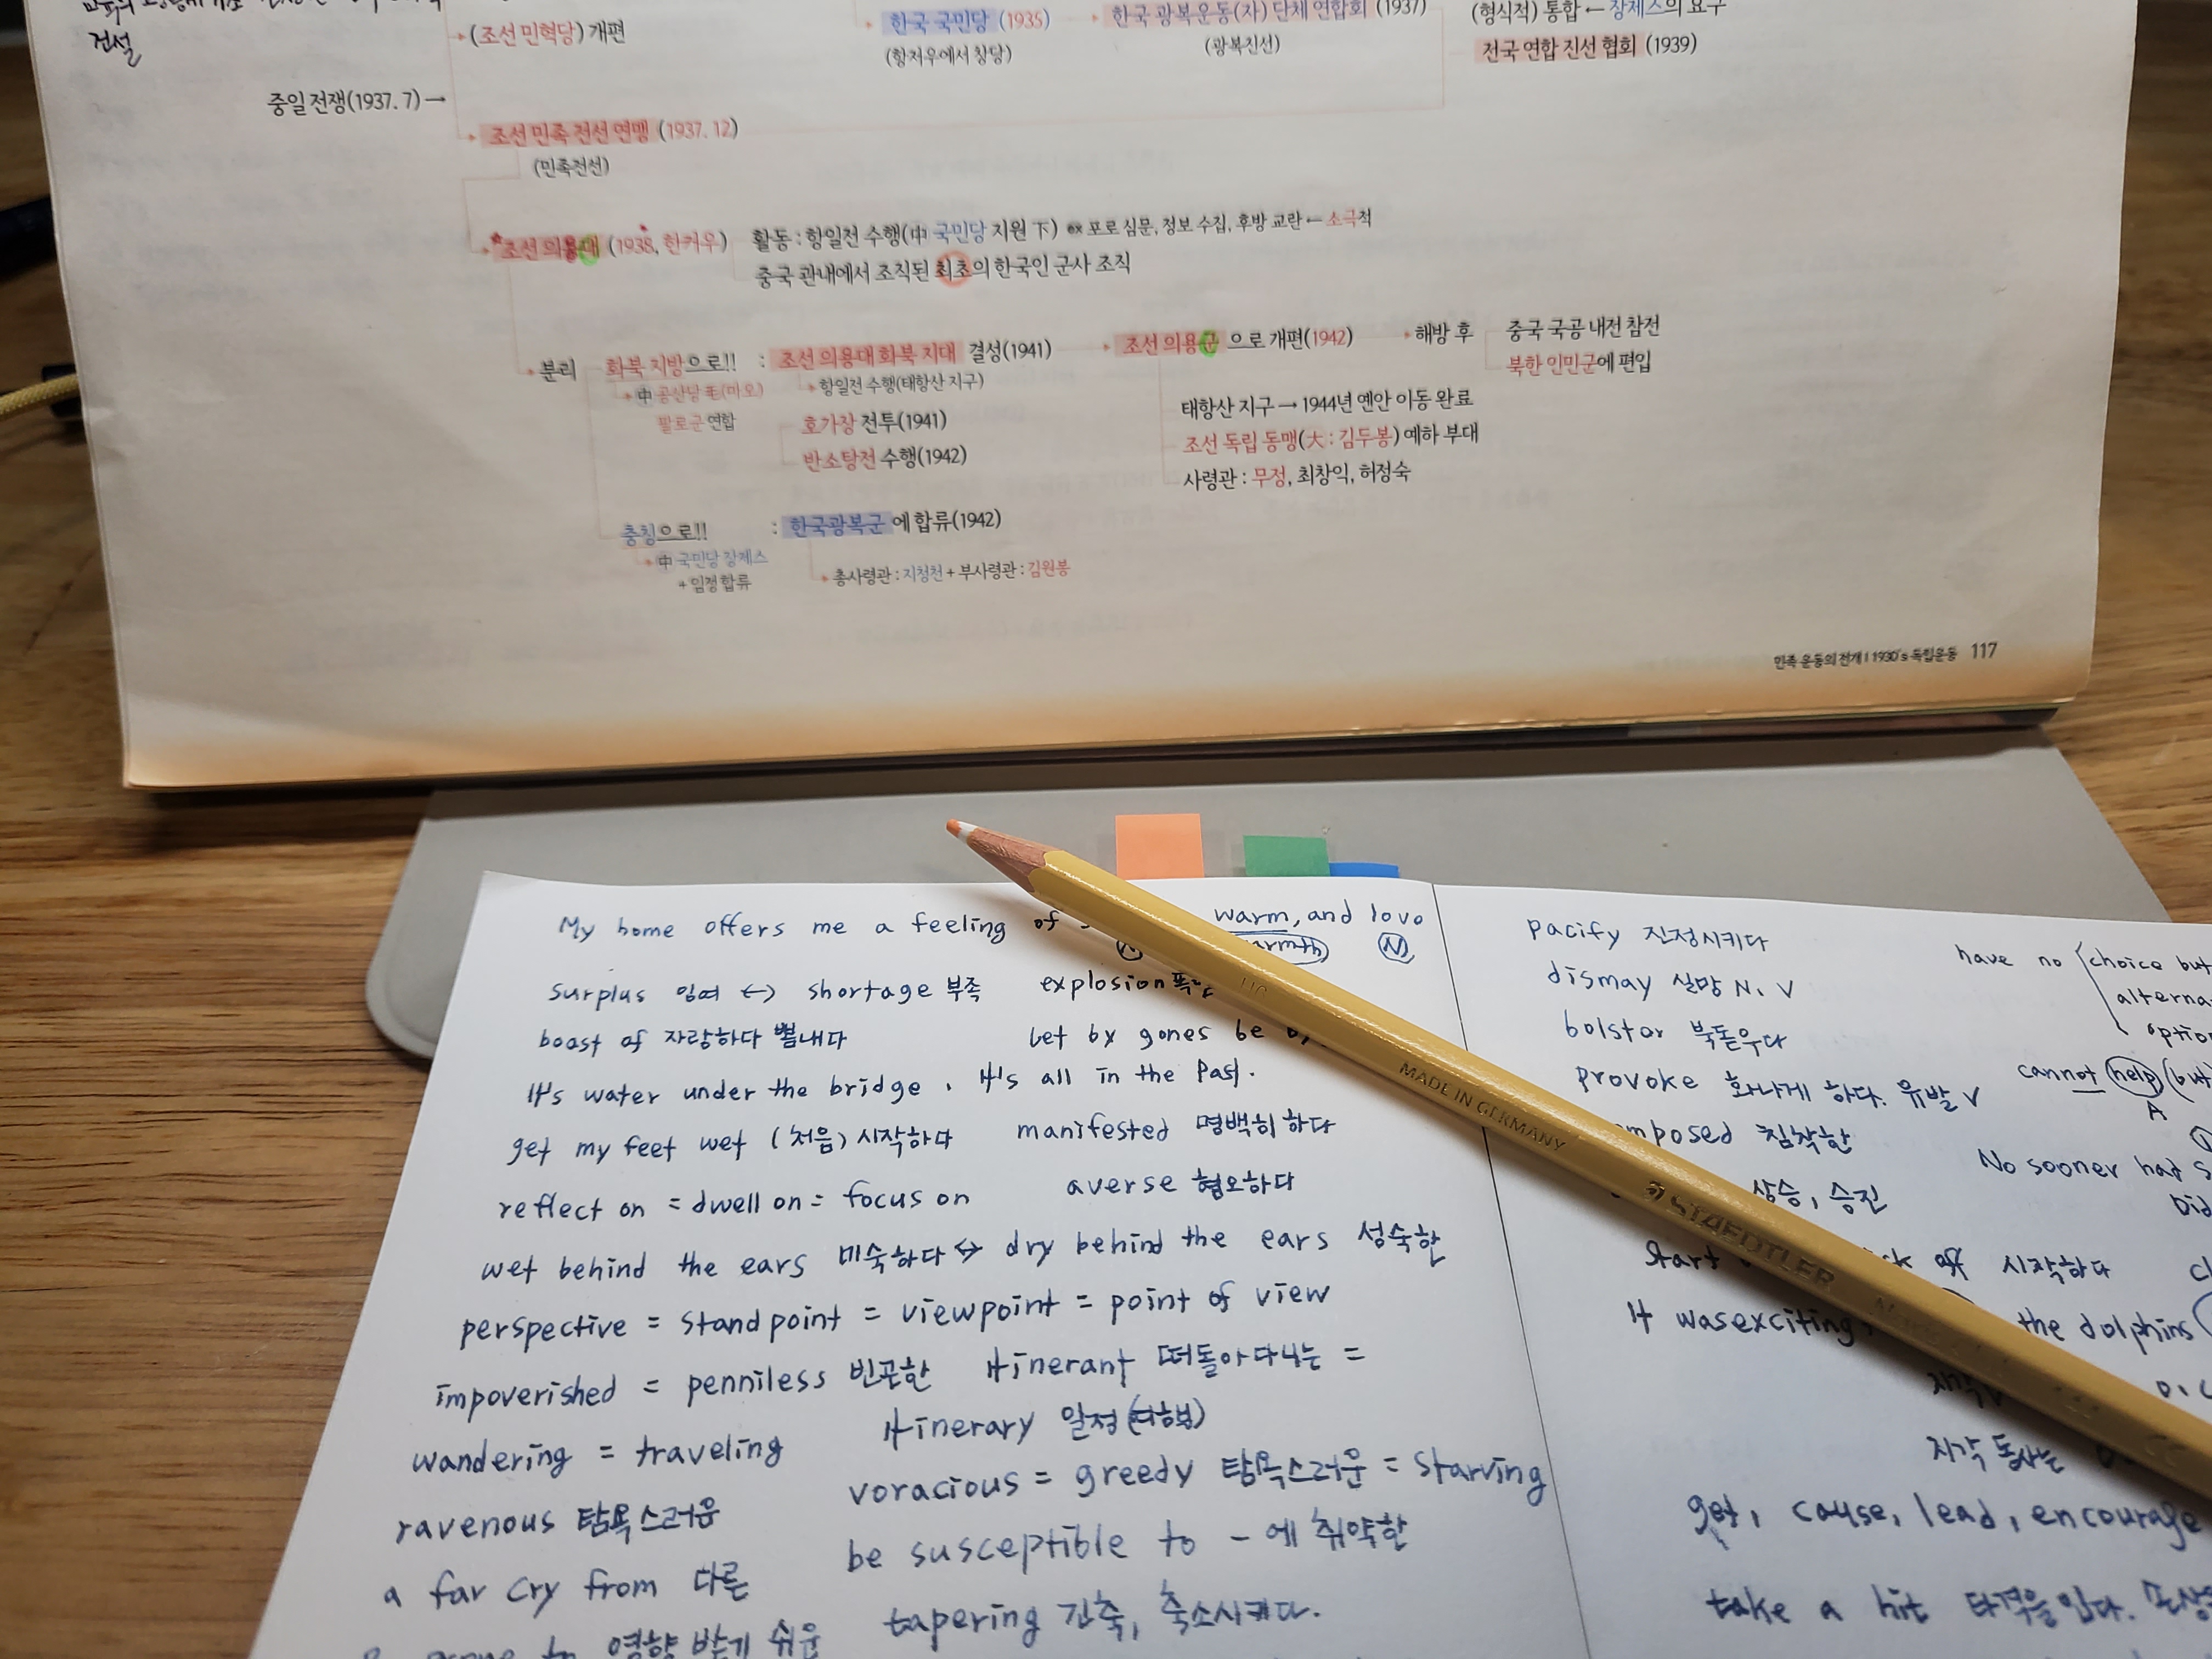 건설
(조선 민혁당) 개편
한국 국민당 (1935)
(항저우에서 창당)
한국 광복운동(자) 단체 연합회 (1937)
(광복진선)
(형식적) 통합 ← 장제스의 요구
전국 연합 진선 협회 (1939)
중일 전쟁(1937. 7) →
조선 민족 전선 연맹 (1937. 12)
(민족전선)
*조선 의용대 (1938, 한커우)
활동 : 항일전 수행(中 국민당 지원 下) ex 포로 심문, 정보 수집, 후방 교란 ← 소극적
중국 관내에서 조직된 최초의 한국인 군사 조직
분리
화북 지방으로!! : 조선 의용대 화북 지대 결성(1941)
中 공산당 毛(마오)
팔로군 연합
항일전 수행(태항산 지구)
호가장 전투(1941)
반소탕전 수행(1942)
조선 의용군 으로 개편(1942)
해방 후
중국 국공 내전 참전
북한 인민군에 편입
태항산 지구 → 1944년 옌안 이동 완료
조선 독립 동맹(大 : 김두봉) 예하 부대
사령관 : 무정, 최창익, 허정숙
충칭으로!! : 한국광복군 에 합류(1942)
中 국민당 장제스
+ 임정 합류
총사령관 : 지청천 + 부사령관 : 김원봉
민족 운동의 전개 | 1930's 독립운동 117
My home offers me a feeling of warm, and love
N
surplus 잉여 ↔ shortage 부족 explosion
boast of 자랑하다 뽐내다 let by gones be
It's water under the bridge. It's all in the past.
get my feet wet (처음) 시작하다 manifested 명백히 하다
reflect on = dwell on = focus on averse 혐오하다
wet behind the ears 미숙하다 ↔ dry behind the ears 성숙한
perspective = stand point = viewpoint = point of view
impoverished = penniless 빈곤한 itinerant 떠돌아다니는 =
wandering = traveling itinerary 일정 (여행)
voracious = greedy 탐욕스러운 = starving
ravenous 탐욕스러운
be susceptible to - 에 취약한
a far cry from 다른
tapering 긴축, 축소시키다.
영향 받기 쉬운
pacify 진정시키다
dismay 실망 N, V
bolster 북돋우다
provoke 화나게 하다. 유발 V
침착한
상승, 승진
have no choice but
cannot help (but)
A
No sooner had
Did
start off 시작하다
It was exciting the dolphins
지각 동사는
get, cause, lead, encourage
take a hit 타격을 입다.
MADE IN GERMANY
STAEDTLER